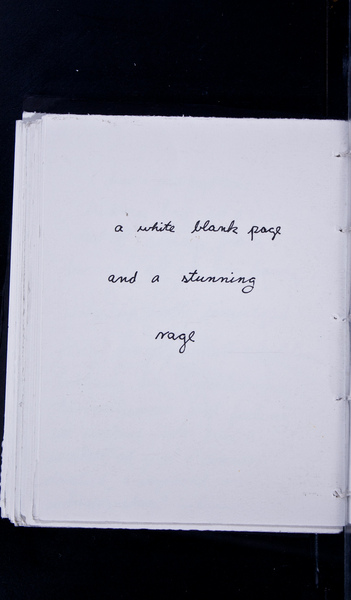 a white blank page
and a stunning
rage